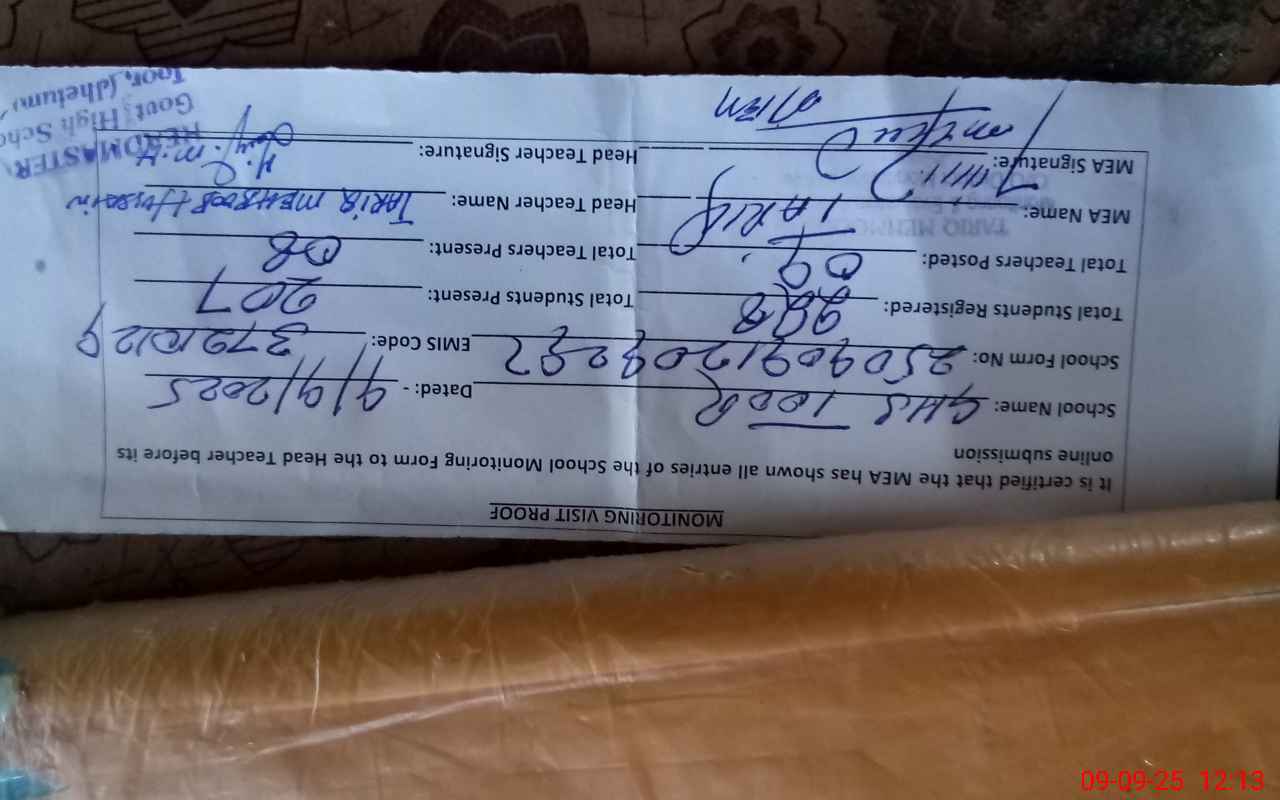 MONITORING VISIT PROOF
It is certified that the MEA has shown all entries of the School Monitoring Form to the Head Teacher before its
online submission
School Name: GHS TOOR Dated: - 9/9/2025
School Form No: EMIS Code: 37210129
Total Students Registered: 228 Total Students Present: 207
Total Teachers Posted: 09 Total Teachers Present: 08
MEA Name: TARIQ Head Teacher Name: TARIQ MEHBOOB HUSSAIN
MEA Signature: Head Teacher Signature:
HEADMASTER
Govt; High Scho
Toor, (Jhelum)
TARIQ MEHMO
09-09-25 12:13